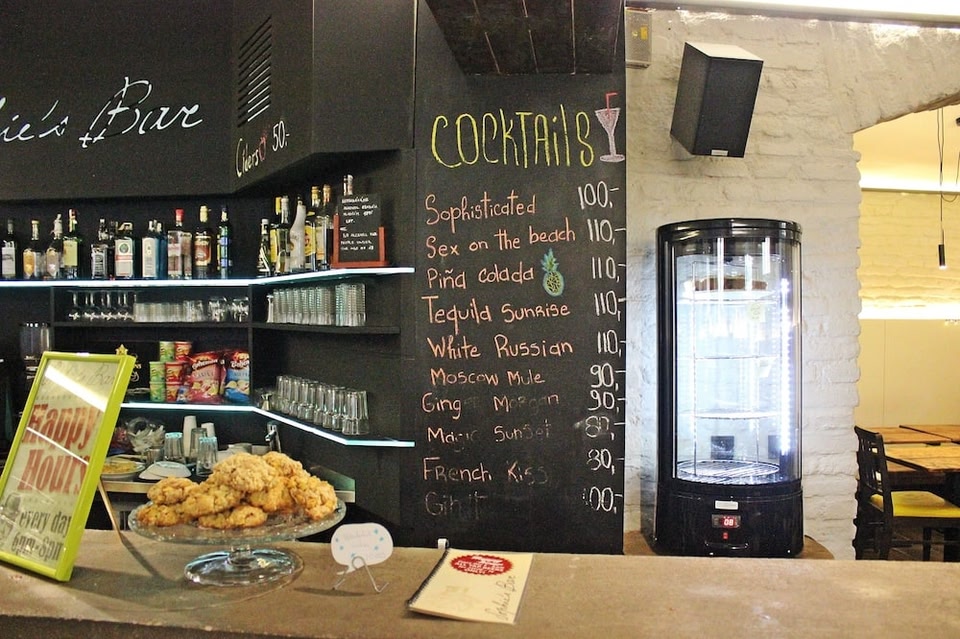 ie's Bar
Ciders 50.-
COCKTAilS
Sophisticated 100,-
Sex on the beach 110,-
Piña colada 110,-
Tequila Sunrise 110,-
White Russian 110,-
Moscow Mule 90,-
Ging Morgan 90,-
Magic Sunset
French Kiss 80,-
00,-
Happy
Hours
every day
6pm-8pm
Bar
08